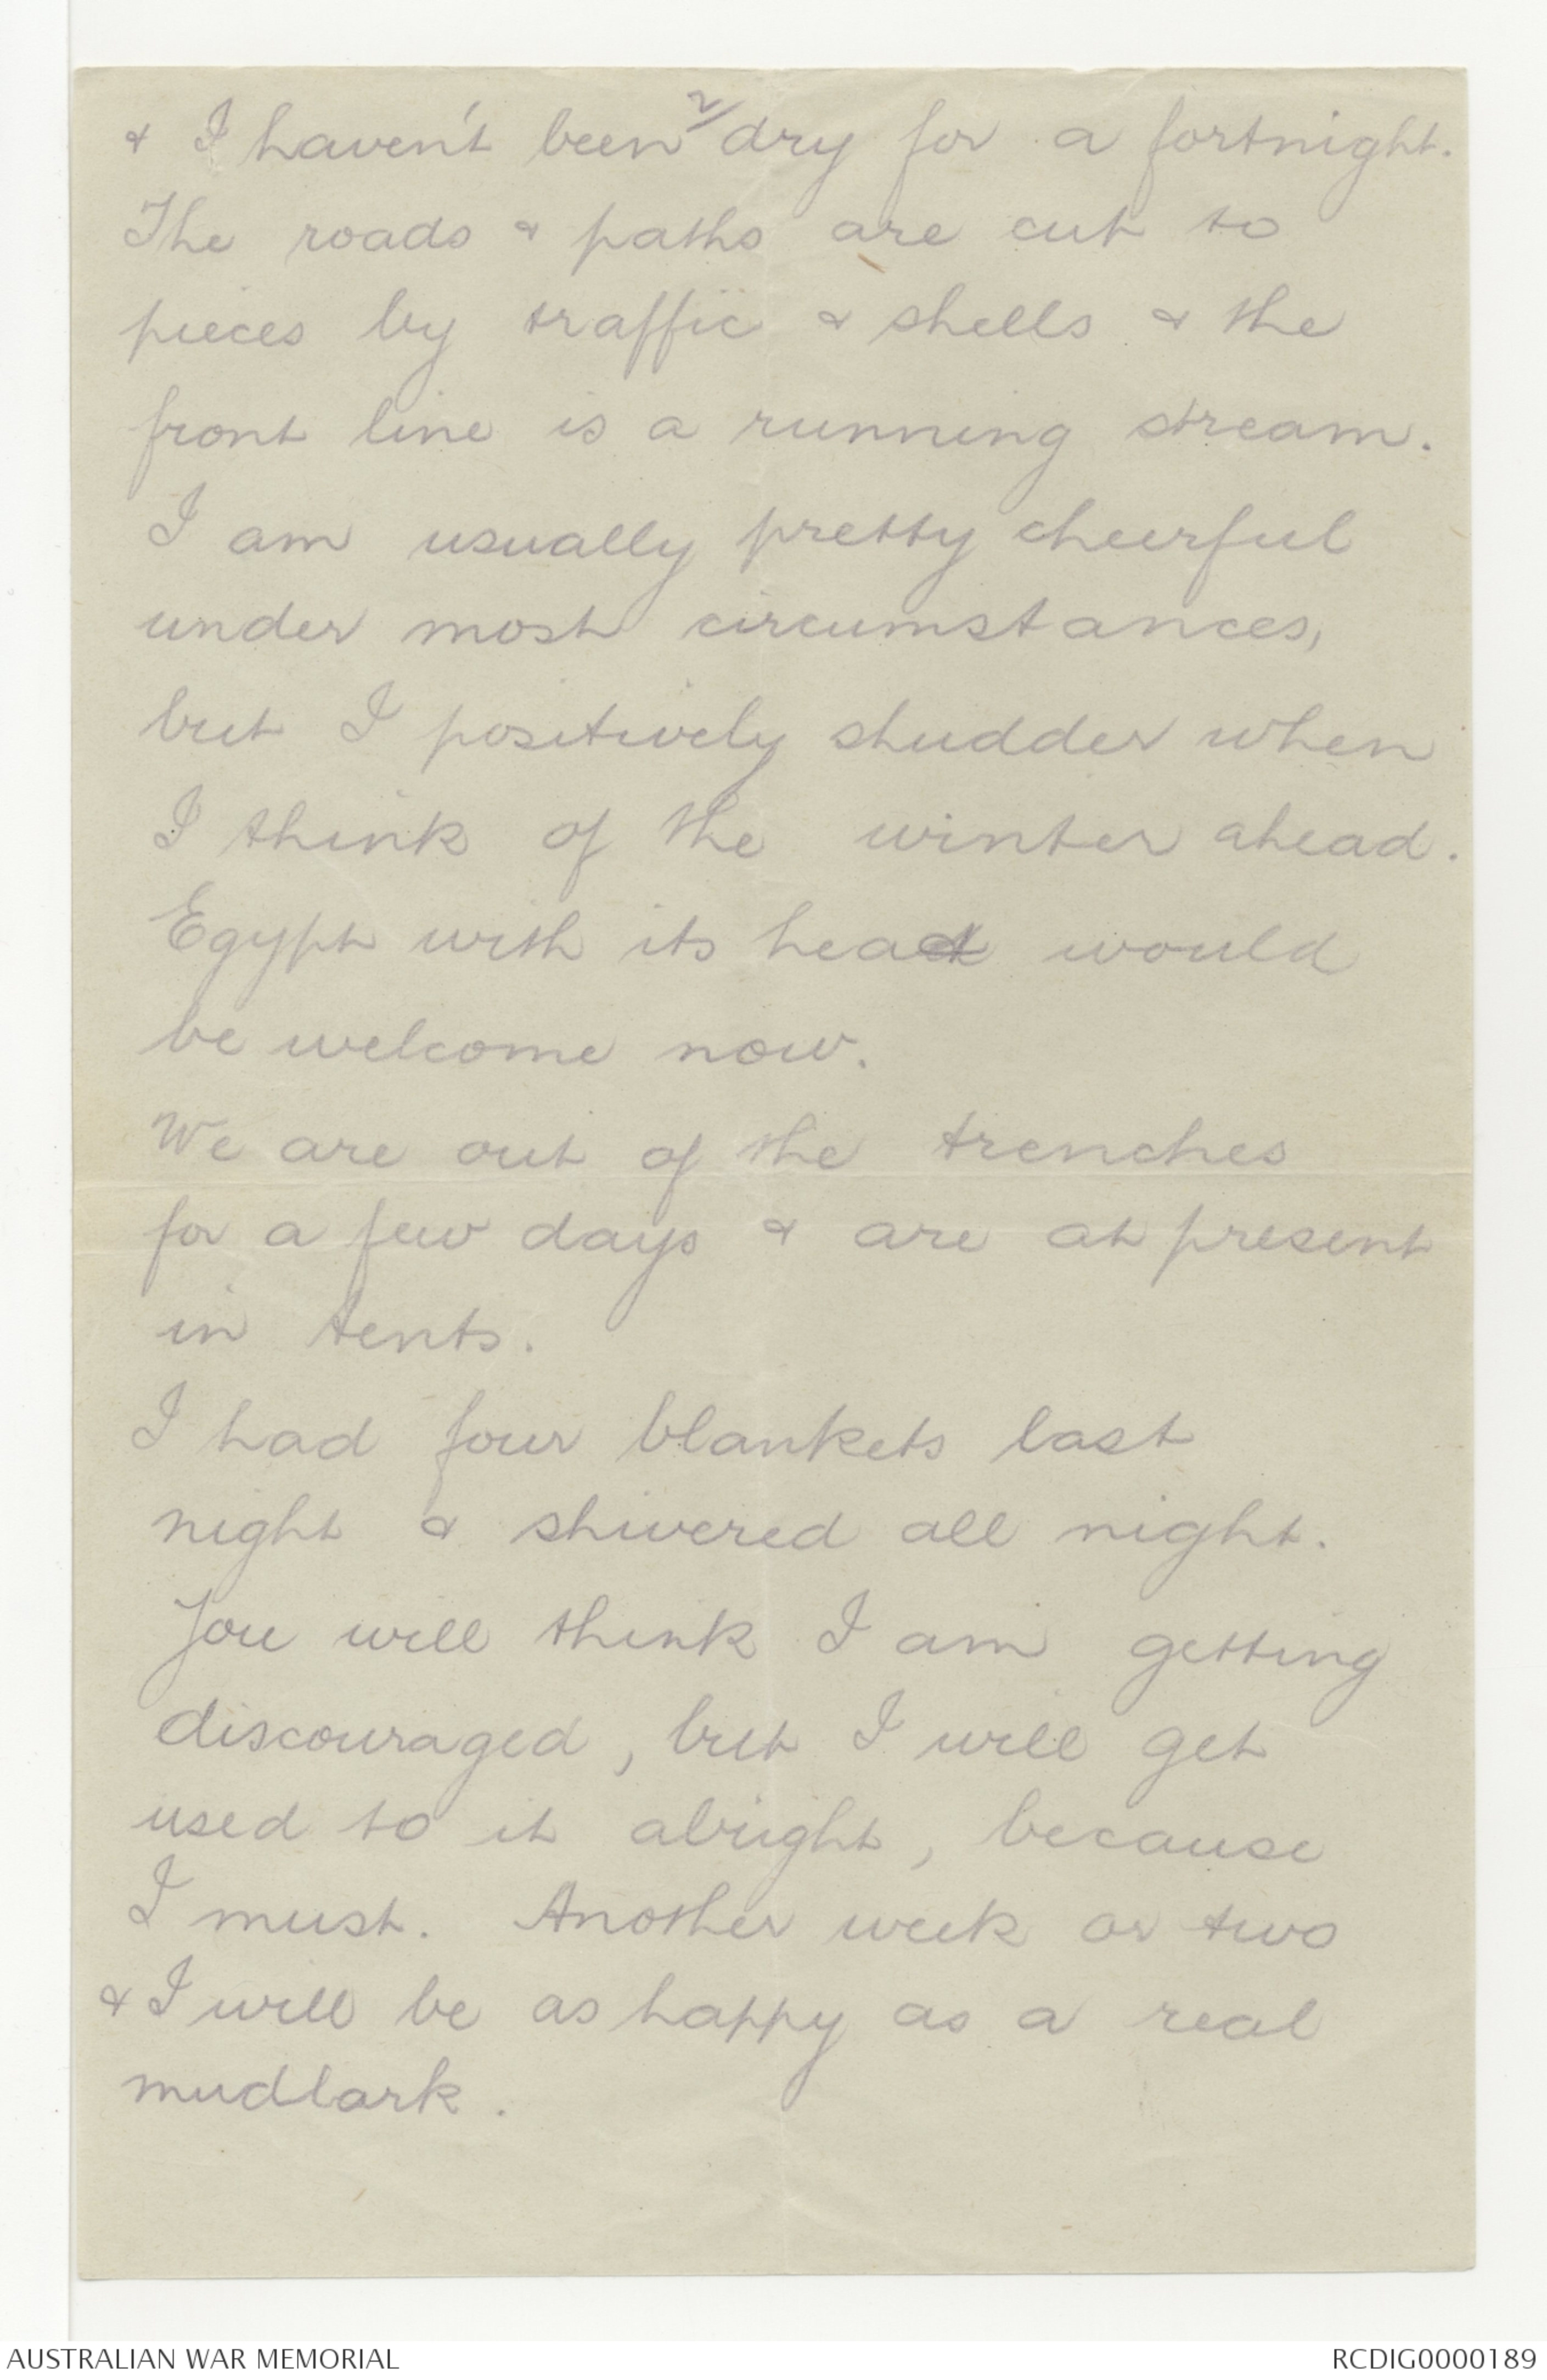 2/
& I haven't been dry for a fortnight.
The roads & paths are cut to
pieces by traffic & shells & the
front line is a running stream.
I am usually pretty cheerful
under most circumstances,
but I positively shudder when
I think of the winter ahead.
Egypt with its heat would
be welcome now.
We are out of the trenches
for a few days & are at present
in tents.
I had four blankets last
night & shivered all night.
You will think I am getting
discouraged, but I will get
used to it alright, because
I must. Another week or two
& I will be as happy as a real
mudlark.
AUSTRALIAN WAR MEMORIAL
RCDIG0000189